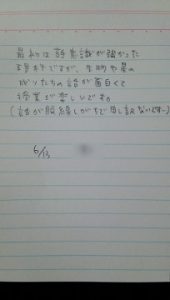 最初は苦手意識が強かった
理科ですが、生物や星の
成りたちの話が面白くて
授業が楽しいです。
(話が脱線しがちで申し訳ないです…)
6/13